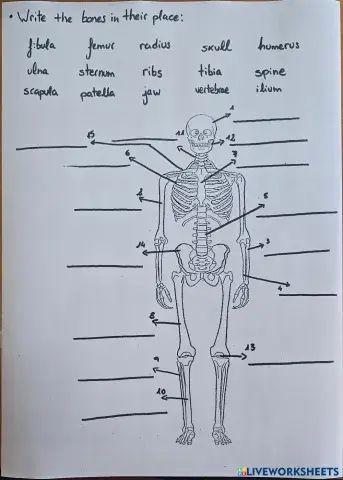 • Write the bones in their place:
fibula femur radius skull humerus
ulna sternum ribs tibia spine
scapula patella jaw vertebrae ilium
1
11 12
15
6 7
2
5
14 3
4
8
13
9
10
LIVEWORKSHEETS